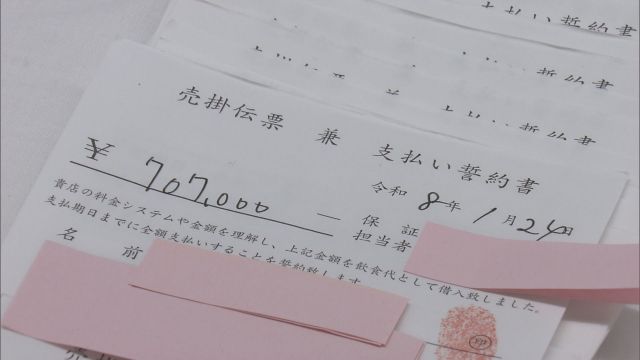 支払い誓約書
支払い誓約書
支払い誓約書
売掛伝票 兼 支払い誓約書
令和 8年 1月 24日
¥ 707,000 ー
保証
担当者
貴店の料金システムや金額を理解し、上記金額を飲食代として借入致しました。
支払期日までに全額支払いすることを誓約致します
名前
印